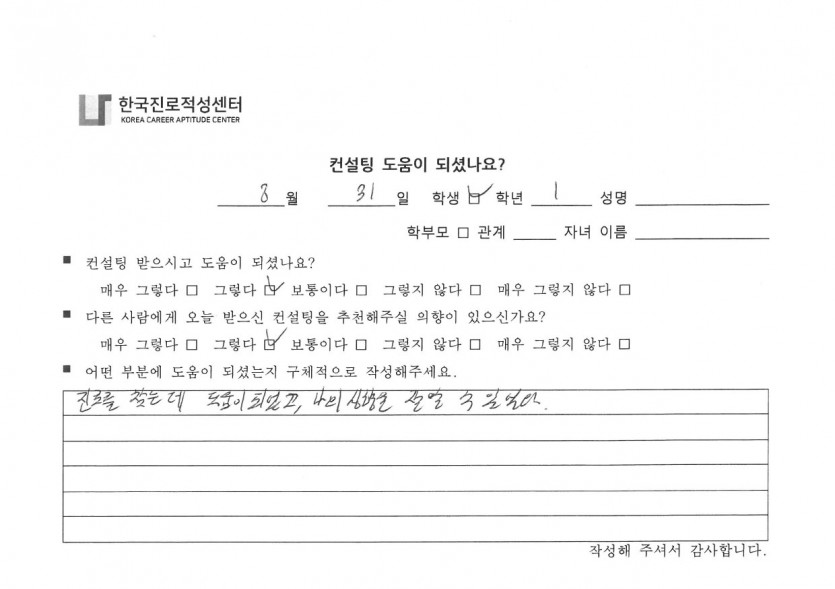 한국진로적성센터
KOREA CAREER APTITUDE CENTER
컨설팅 도움이 되셨나요?
8월 31일 학생 ☑ 학년 1 성명
학부모 □ 관계 자녀 이름
■ 컨설팅 받으시고 도움이 되셨나요?
매우 그렇다 □ 그렇다 ☑ 보통이다 □ 그렇지 않다 □ 매우 그렇지 않다 □
■ 다른 사람에게 오늘 받으신 컨설팅을 추천해주실 의향이 있으신가요?
매우 그렇다 □ 그렇다 ☑ 보통이다 □ 그렇지 않다 □ 매우 그렇지 않다 □
■ 어떤 부분에 도움이 되셨는지 구체적으로 작성해주세요.
진로를 찾는데 도움이 되었고, 나의 수 있었다.
작성해 주셔서 감사합니다.